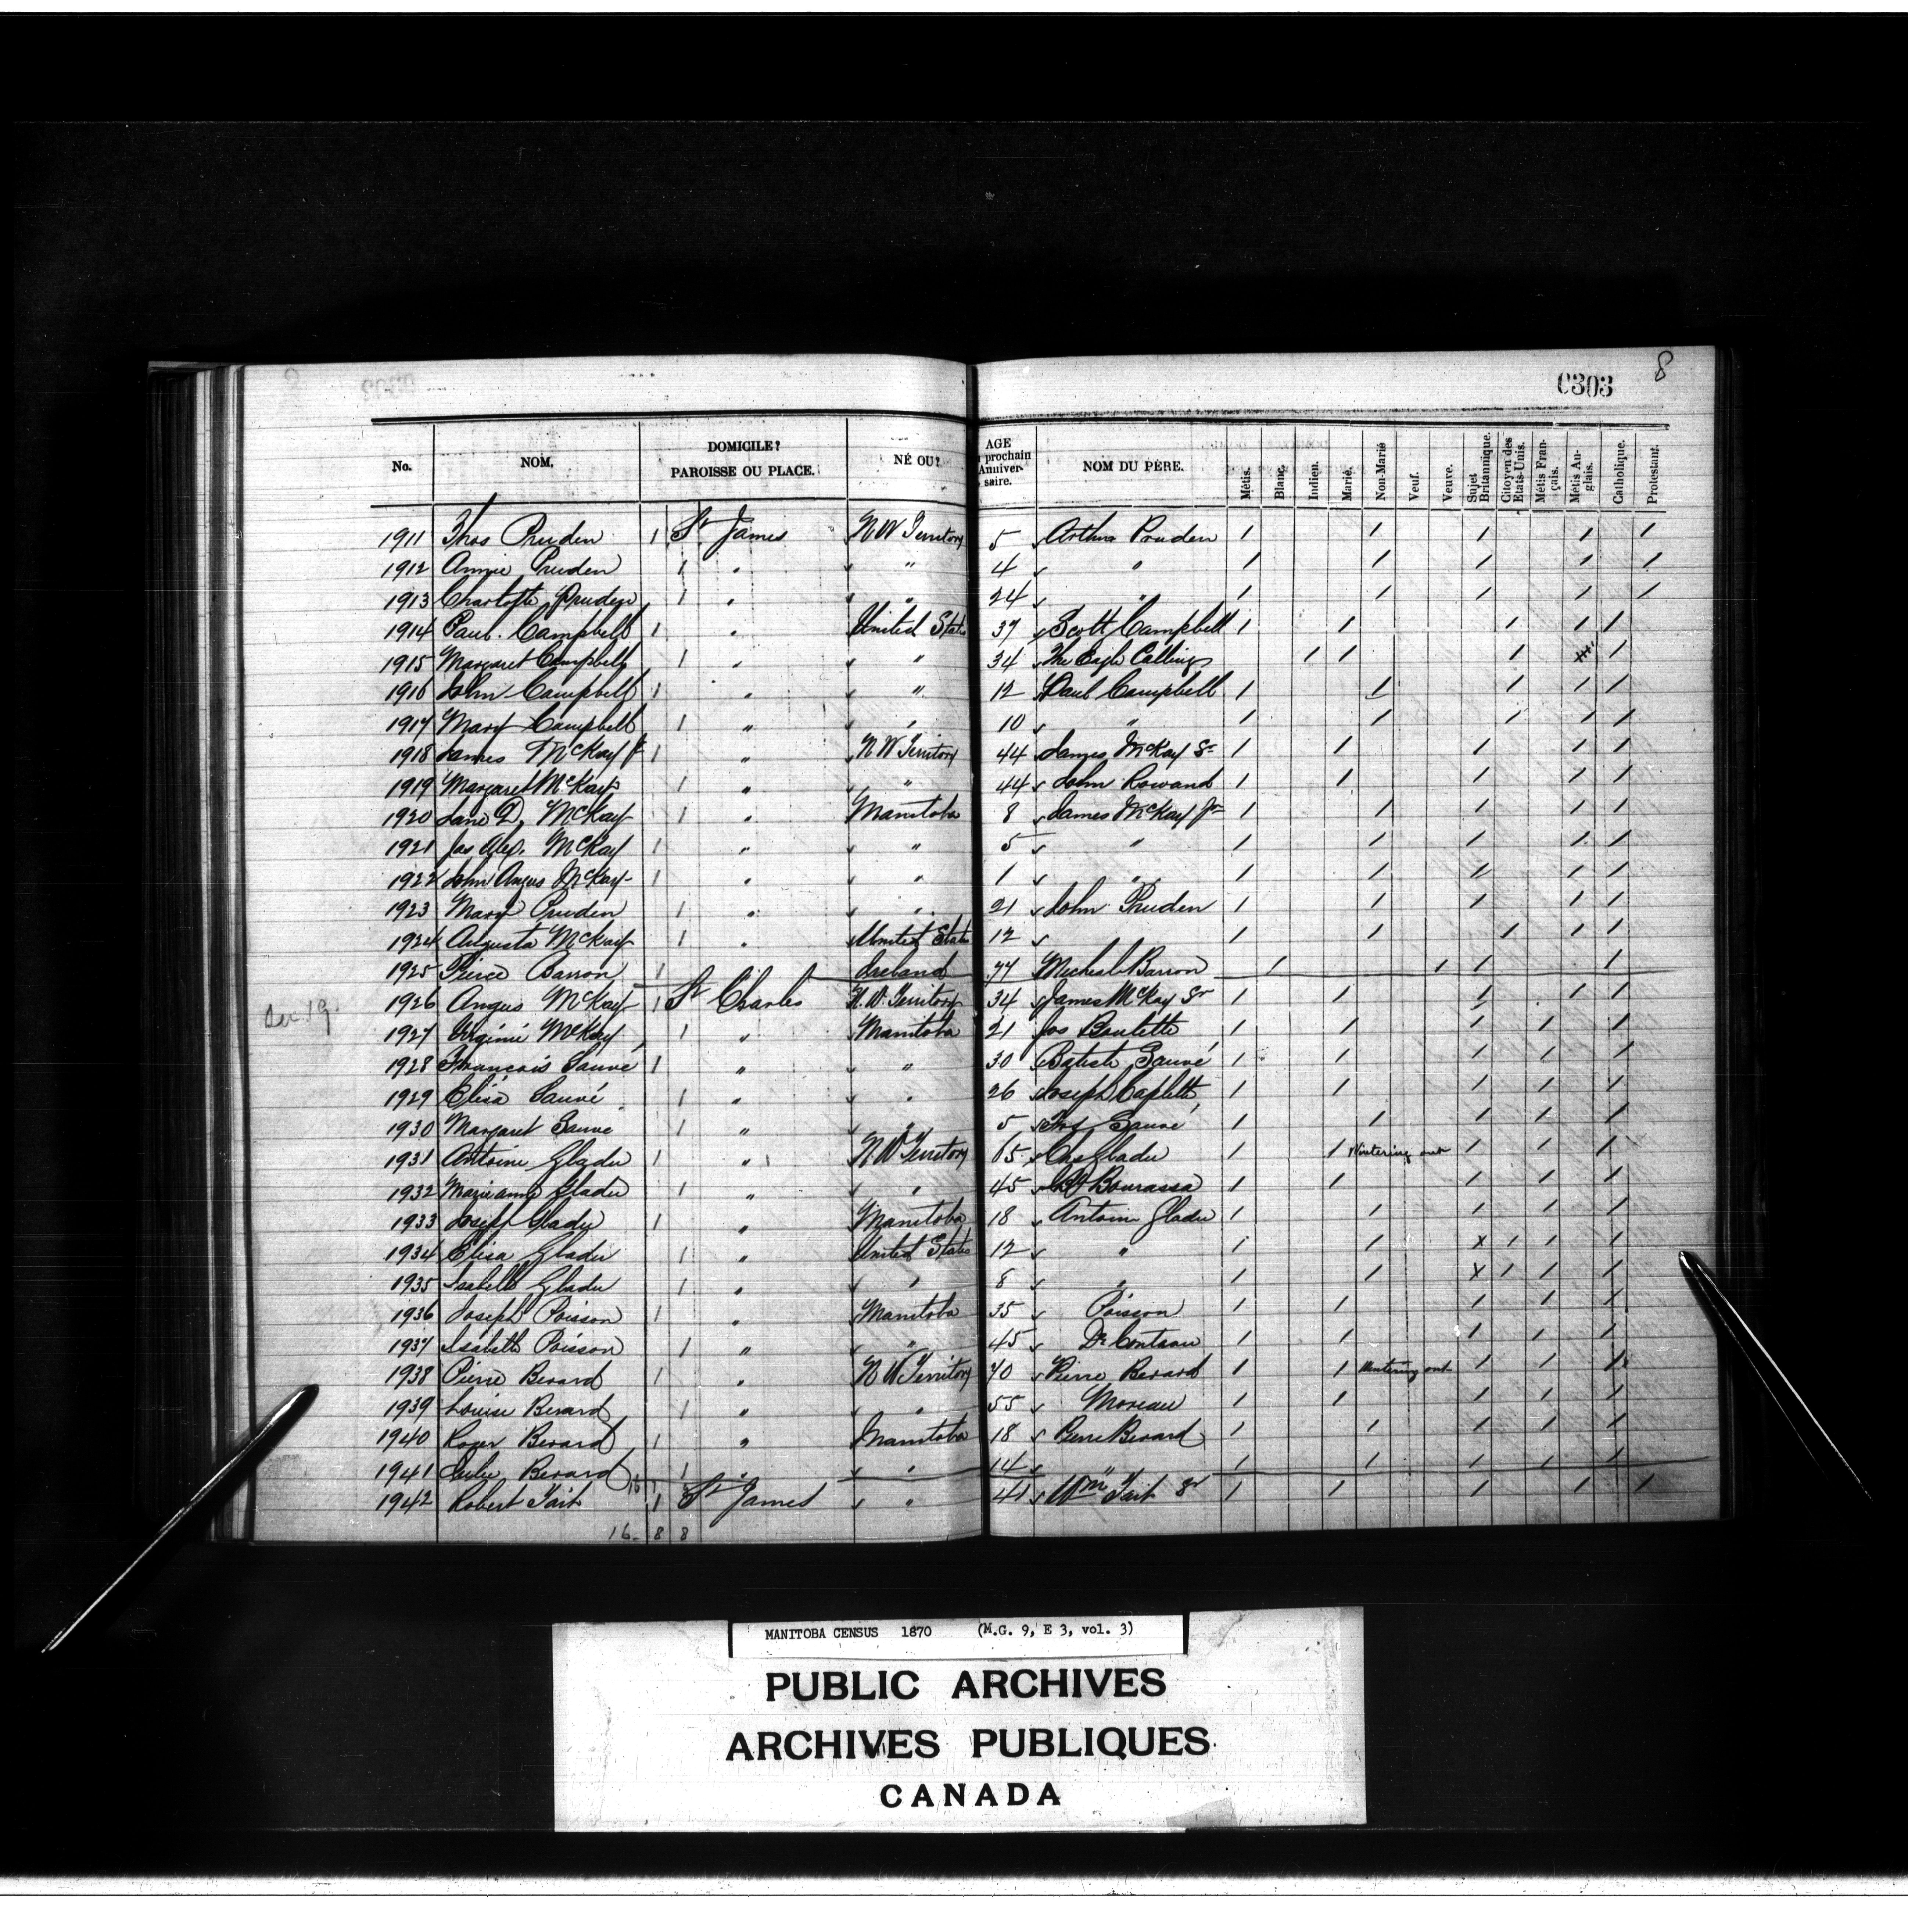 8
C303
No. NOM. DOMICILE? PAROISSE OU PLACE. NÉ OU? AGE prochain Anniver-saire. NOM DU PÈRE. Métis. Blanc. Indien. Marié. Non-Marié Veuf. Veuve. Sujet Britannique. Citoyen des Etats-Unis. Métis Fran-çais. Métis An-glais. Catholique. Protestant.
1911 Thos Pruden 1 St James N W Territory 5 Arthur Pruden / / / / /
1912 Annie Pruden 1 " " 4 " / / / / /
1913 Charlotte Pruden 1 " " 24 " / / / / /
1914 Paul Campbell 1 " United States 37 Scott Campbell / / / / /
1915 Margaret Campbell 1 " " 34 The Eagle Calling / / / /
1916 John Campbell 1 " " 12 Paul Campbell / / / / /
1917 Mary Campbell 1 " " 10 " / / / / /
1918 James McKay Jr 1 " N W Territory 44 James McKay Sr / / / / /
1919 Margaret McKay 1 " " 44 John Rowand / / / / /
1920 Jane D. McKay 1 " Manitoba 8 James McKay Jr / / / / /
1921 Jas Alex. McKay 1 " " 5 " / / / / /
1922 John Angus McKay 1 " " 1 " / / / / /
1923 Mary Pruden 1 " " 21 John Pruden / / / / /
1924 Augusta McKay 1 " United States 12 / / / / /
1925 Pierce Barron 1 Ireland 77 Micheal Barron / / / /
Dec 19 1926 Angus McKay 1 St Charles N. W. Territory 34 James McKay Sr / / / / /
1927 Virginie McKay 1 " Manitoba 21 Jos Boulette / / / / /
1928 Francois Sauvé 1 " " 30 Batiste Sauvé / / / / /
1929 Elisa Sauvé 1 " " 26 Joseph Caplette / / / / /
1930 Margaret Sauve 1 " " 5 Sauvé / / / / /
1931 Antoine Gladu 1 " N. W Territory 65 Chs Gladu / / Wintering out / / /
1932 Marieanne Gladu 1 " " 45 Bourassa / / / / /
1933 Joseph Gladu 1 " Manitoba 18 Antoine Gladu / / / / /
1934 Elisa Gladu 1 " United States 12 " / / x / / /
1935 Isabelle Gladu 1 " " 8 " / / x / / /
1936 Joseph Poisson 1 " Manitoba 35 Poisson / / / / /
1937 Isabelle Poisson 1 " " 45 / / / / /
1938 Pierre Berard 1 " N W Territory 70 Pierre Berard / / Wintering out / / /
1939 Louise Berard 1 " " 55 Moreau / / / / /
1940 Roger Berard 1 " Manitoba 18 Pierre Berard / / / / /
1941 Julie Berard 1 " " 14 " / / / / /
1942 Robert Tait 1 St James " 41 Wm Tait Sr / / / / /
16 - 8 8
MANITOBA CENSUS 1870 (M.G. 9, E 3, vol. 3)
PUBLIC ARCHIVES
ARCHIVES PUBLIQUES
CANADA